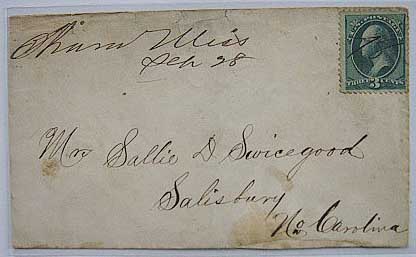 Miss
Feb 28
U.S. POSTAGE
THREE 3 CENTS
Mrs Sallie D Swicegood
Salisbury
No Carolina